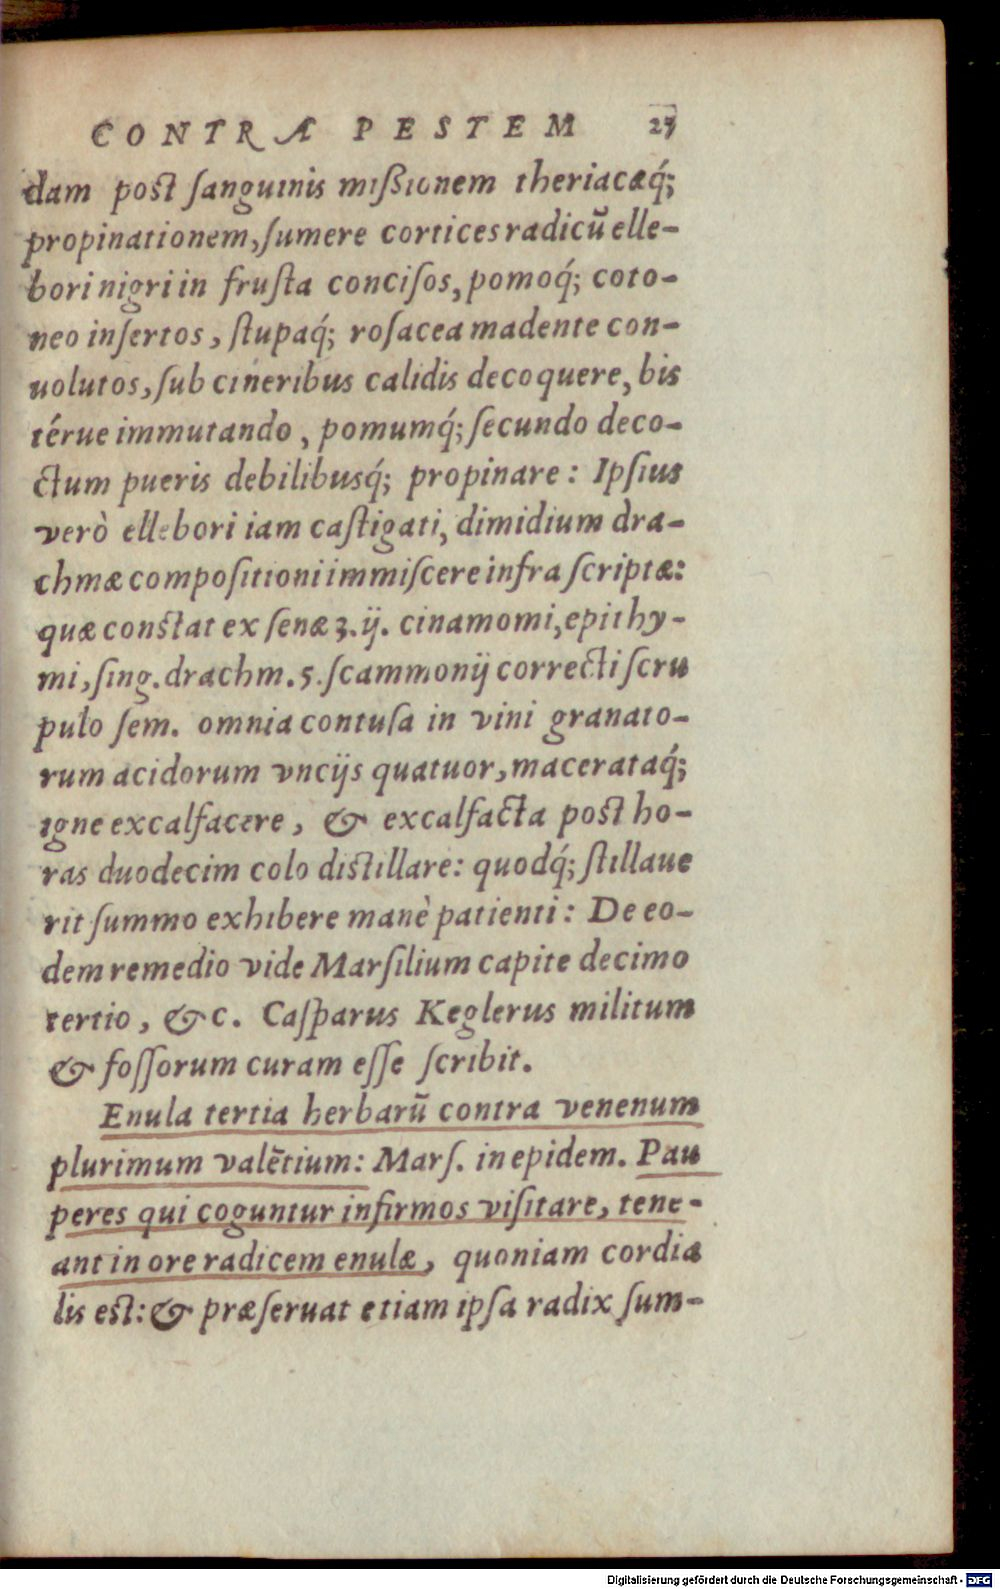 CONTRA PESTEM 27
dam post ſanguinis mißionem theriacæq́;
propinationem, ſumere cortices radicũ elle-
bori nigri in fruſta conciſos, pomoq́; coto-
neo inſertos, ſtupaq́; roſacea madente con-
uolutos, ſub cineribus calidis decoquere, bis
térue immutando, pomumq́; ſecundo deco-
ctum pueris debilibusq́; propinare: Ipſius
verò ellebori iam caſtigati, dimidium dra-
chmæ compoſitioni immiſcere infra ſcriptæ:
quæ constat ex ſenæ ʒ.ij. cinamomi, epithy-
mi, ſing. drachm. 5. ſcammonij correcti ſcru
pulo ſem. omnia contuſa in vini granato-
rum acidorum vncijs quatuor, macerataq́;
igne excalfacere, & excalfacta post ho-
ras duodecim colo distillare: quodq́; ſtillaue
rit ſummo exhibere manè patienti: De eo-
dem remedio vide Marſilium capite decimo
tertio, &c. Caſparus Keglerus militum
& foſſorum curam eſſe ſcribit.
Enula tertia herbarũ contra venenum
plurimum valẽtium: Marſ. in epidem. Pau
peres qui coguntur infirmos viſitare, tene-
ant in ore radicem enulæ, quoniam cordia
lis est: & præſeruat etiam ipſa radix ſum-
Digitalisierung gefördert durch die Deutsche Forschungsgemeinschaft - DFG